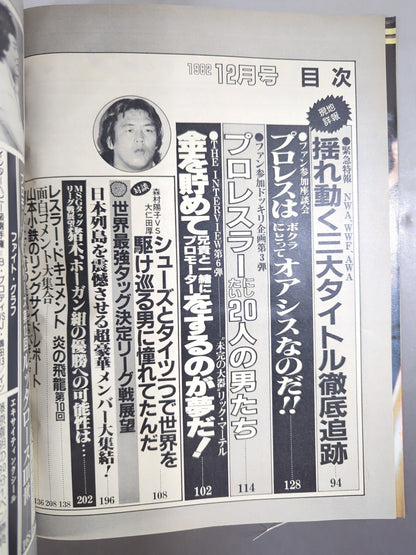 1982 12月号 目次
現地詳報
●緊急特報 NWA、WWF、AWA
揺れ動く三大タイトル徹底追跡
94
●ファン参加座談会
プロレスはボクラにとってオアシスなのだ!!
128
●ファン参加ドッキリ企画第3弾
プロレスラーにしたい20人の男たち
114
●THE INTERVIEW第6弾 未完の大器 リック・マーテル
金を貯めて兄貴と一緒にプロモーターをするのが夢だ!
102
対談 森村陽子VS大仁田厚
シューズとタイツ一つで世界を駆け巡る男に憧れてたんだ
108
世界最強タッグ決定リーグ戦展望
日本列島を震撼させる超豪華メンバー大集結!
196
猪木、ホーガン組の優勝への可能性は…
202
レスラードキュメント 炎の飛龍 第10回
138
面白コメント大集合
208
山本小鉄のリングサイドレポート
136
ファイト・クラブ
エキサイティングシール